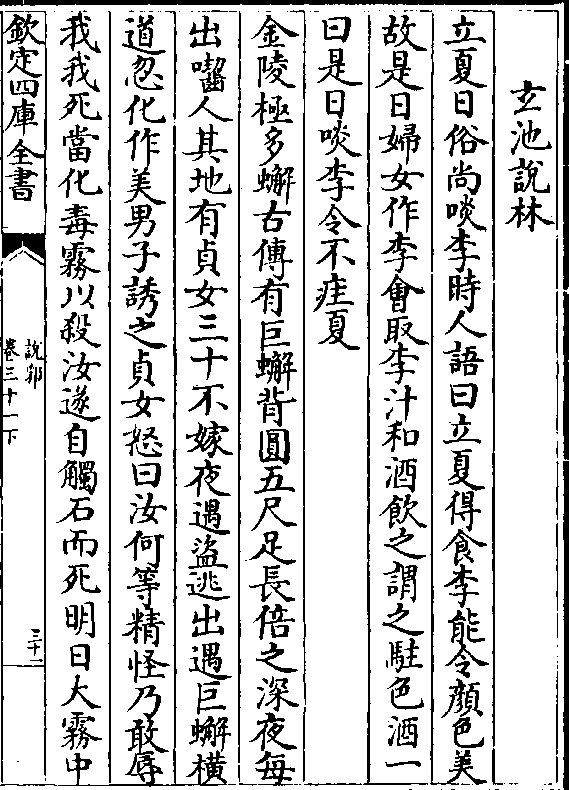 玄池說林
立夏日俗尚啖李時人語曰立夏得食李能令顏色美
故是日婦女作李會取李汁和酒飲之謂之駐色酒一
曰是日啖李令不疰夏
金陵極多蠏古傳有巨蠏背圓五尺足長倍之深夜每
出囓人其地有貞女三十不嫁夜遇盜逃出遇巨蠏橫
道忽化作美男子誘之貞女怒曰汝何等精怪乃敢辱
我我死當化毒霧以殺汝遂自觸石而死明日大霧中
欽定四庫全書
說郛
卷三十一下
三十一